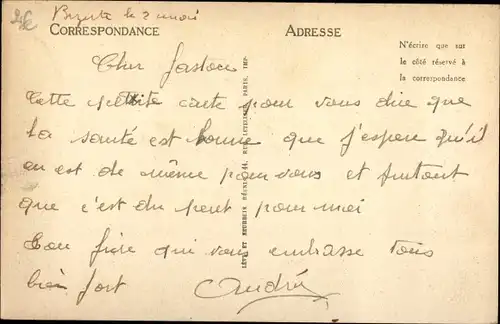 Bizerte le 2 mai
CORRESPONDANCE
ADRESSE
N'écrire que sur
le côté réservé à
la correspondance
Cher Gaston
Cette petite carte pour vous dire que
la santé est bonne que j'espere qu'il
en est de même pour vous et surtout
que c'est du pour moi
Ton frère qui vous embrasse tous
bien fort
André
LÉVY ET NEURDEIN RÉUNIS, 44, RUE LETELLIER, PARIS, IMP.